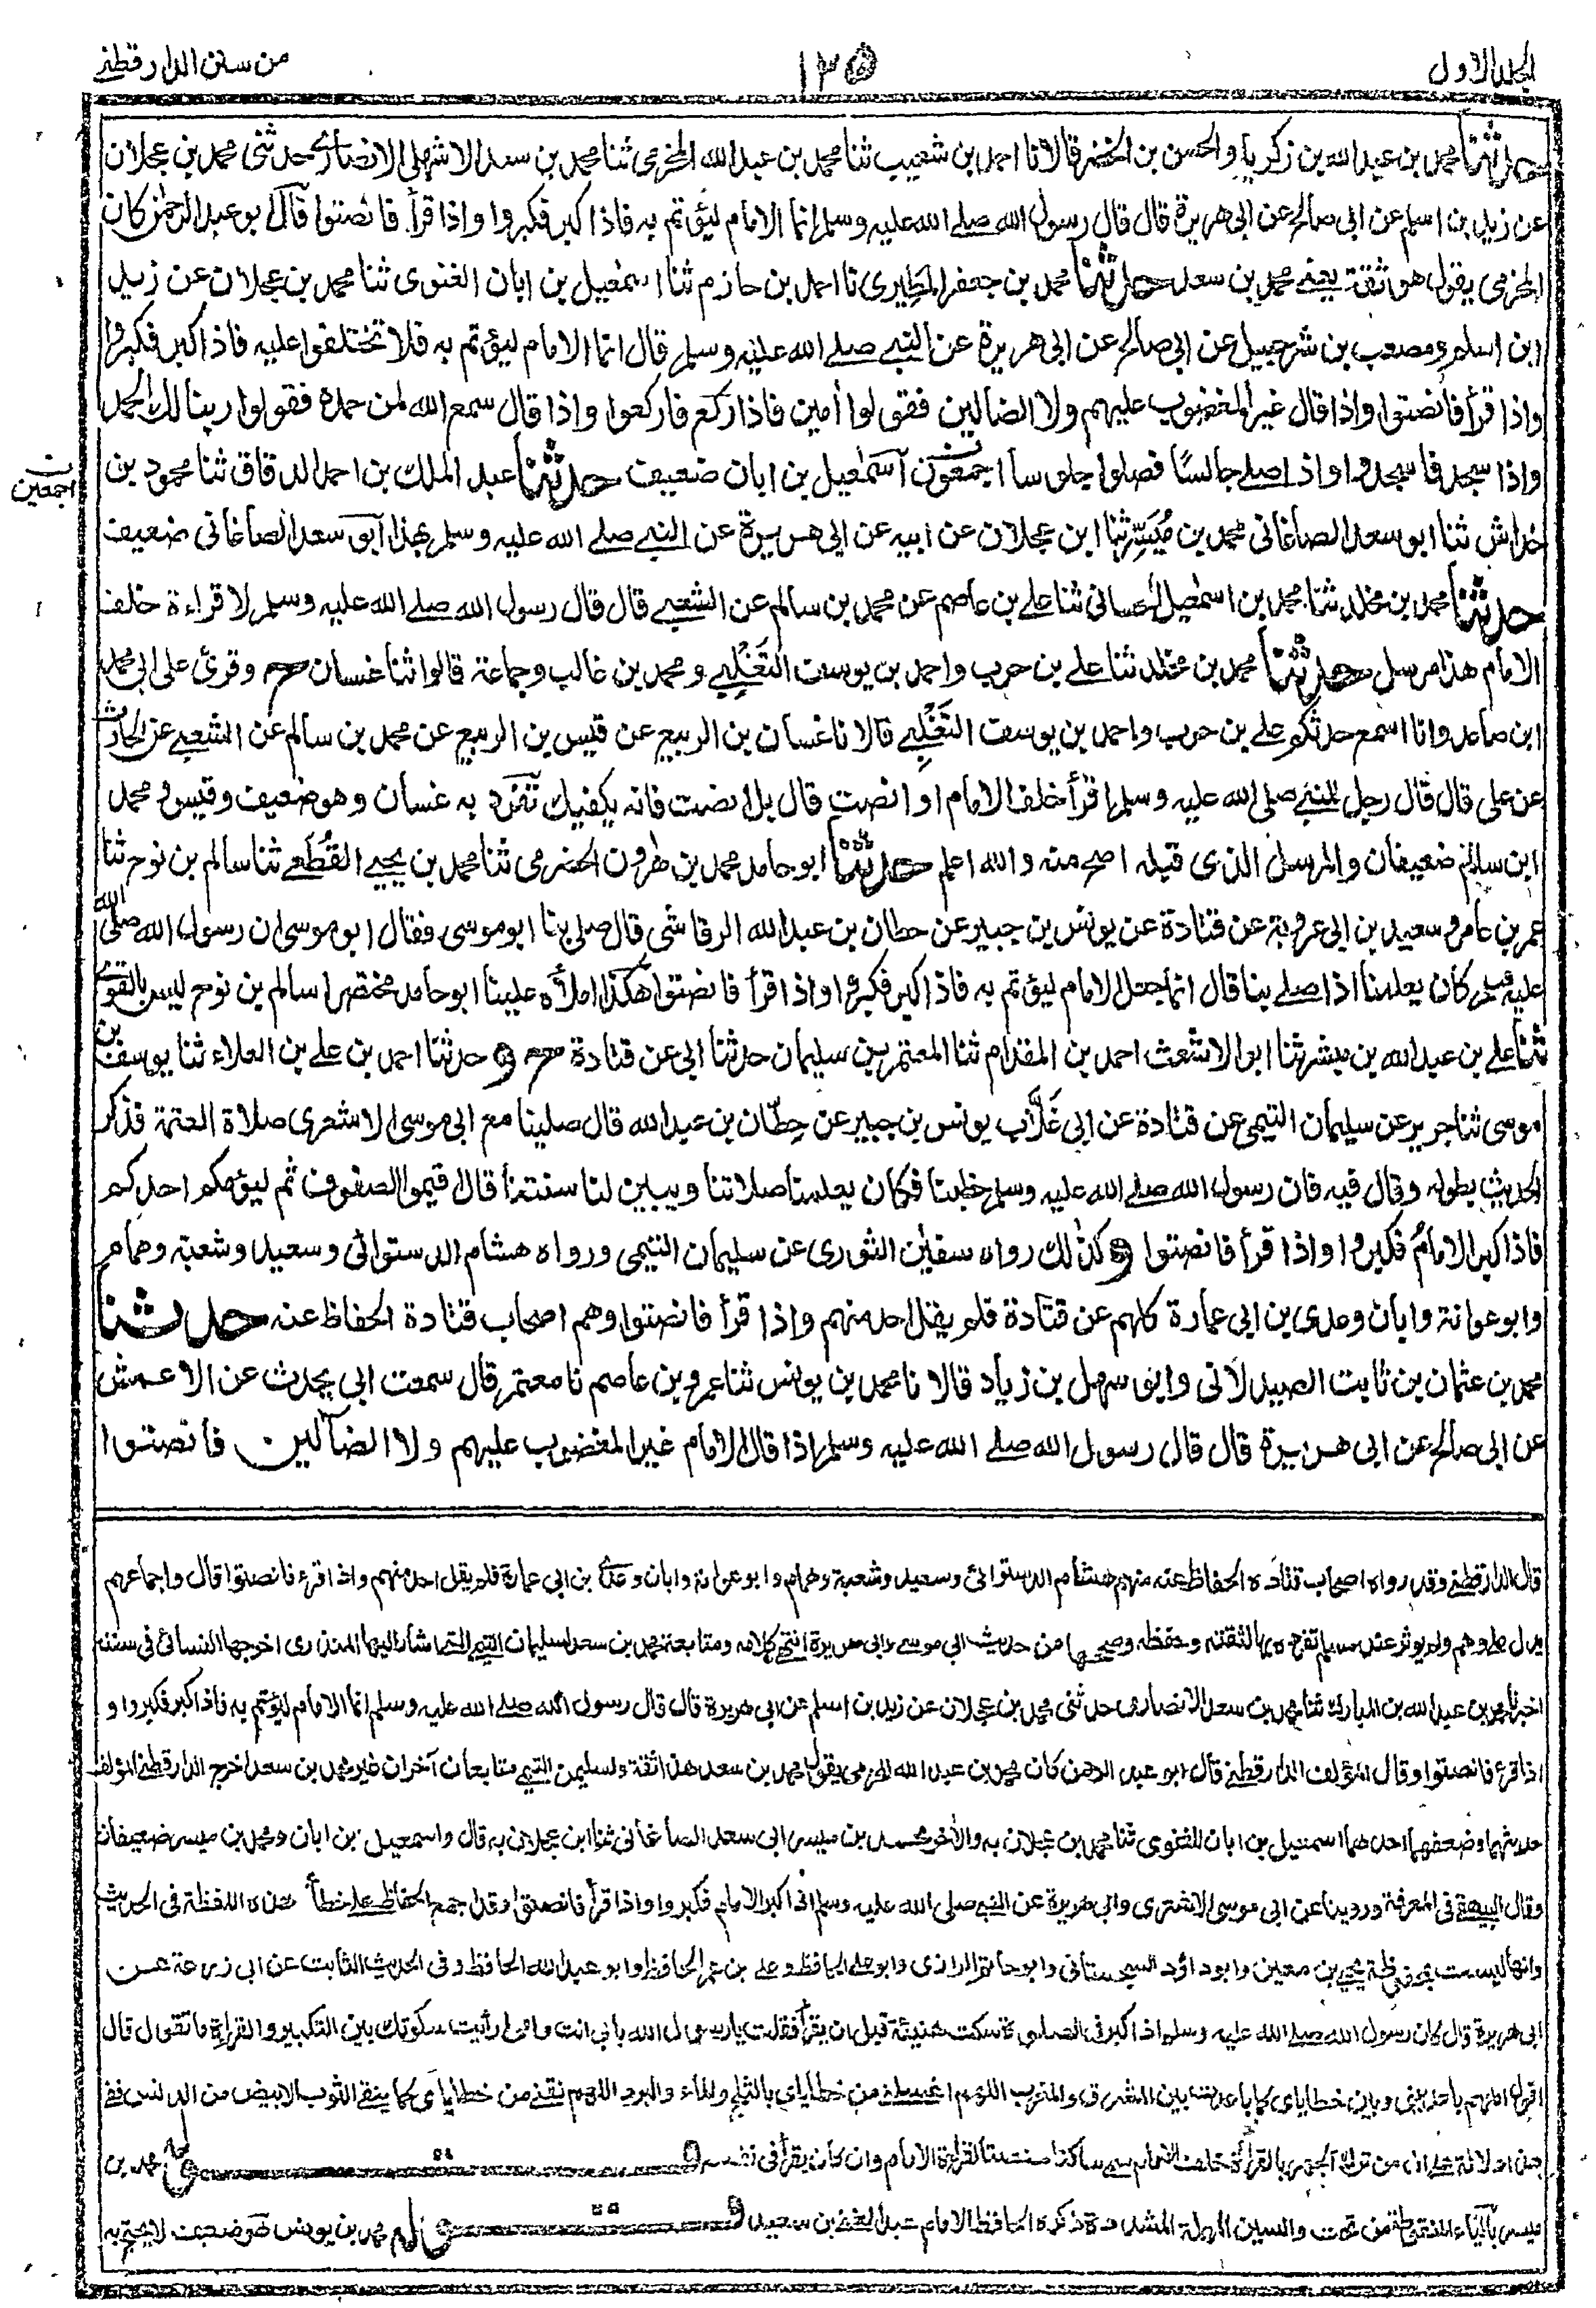 المجلد الاول
١٢٥
من سنن الدارقطني
حدثنا محمد بن عبد الله بن زكريا والحسن بن الخضر قالا نا احمد بن شعيب ثنا محمد بن عبد الله المخرمي ثنا محمد بن سعد الاشهلي الانصاري حدثنى محمد بن عجلان
عن زيد بن اسلم عن ابي صالح عن ابي هريرة قال قال رسول الله صلے الله عليه وسلم انما الامام ليؤتم به فاذا كبر فكبروا واذا قرأ فانصتوا قال ابو عبد الرحمٰن كان
المخرمي يقول هو ثقة يعنے محمد بن سعد حدثنا محمد بن جعفر المطيري نا احمد بن حازم ثنا اسمٰعيل بن ابان الغنوى ثنا محمد بن عجلان عن زيد
ابن اسلم ومصعب بن شرحبيل عن ابي صالح عن ابي هريرة عن النبي صلے الله عليه وسلم قال انما الامام ليؤتم به فلا تختلفوا عليه فاذا كبر فكبروا
واذا قرأ فانصتوا واذا قال غير المغضوب عليهم ولا الضالين فقولوا اٰمين فاذا ركع فاركعوا واذا قال سمع الله لمن حمده فقولوا ربنا لك الحمد
واذا سجد فاسجدوا واذا صلے جالسًا فصلوا جلوسا اجمعون اسمٰعيل بن ابان ضعيف حدثنا عبد الملك بن احمد الدقاق ثنا محمود بن
ن اجمعين
خداش ثنا ابو سعد الصاغانى محمد بن مُيَسِّر ثنا ابن عجلان عن ابيه عن ابي هريرة عن النبے صلے الله عليه وسلم بهذا ابو سعد الصاغانى ضعيف
حدثنا محمد بن مخلد ثنا محمد بن اسمعيل الحسانى ثنا علے بن عاصم عن محمد بن سالم عن الشعبے قال قال رسول الله صلے الله عليه وسلم لا قراءة خلف
الامام هذا مرسل حدثنا محمد بن مخلد ثنا علے بن حرب واحمد بن يوسف التَغْلِبے ومحمد بن غالب وجماعة قالوا ثنا غسان ح وقرئ على ابى محمد
ابن صاعد وانا اسمع حدثكم علے بن حرب واحمد بن يوسف التَغْلِبے قالا نا غسان بن الربيع عن قيس بن الربيع عن محمد بن سالم عن الشعبے عن الحارث
عن على قال قال رجل للنبے صلى الله عليه وسلم اقرأ خلف الامام او انصت قال بل انصت فانه يكفيك تَفَرَّد به غسان وهو ضعيف وقيس ومحمد
ابن سالم ضعيفان والمرسل الذى قبله اصح منه والله اعلم حدثنا ابو حامد محمد بن هٰرون الحضرمى ثنا محمد بن يحيے القُطَعے ثنا سالم بن نوح ثنا
عمر بن عامر وسعيد بن ابى عروبة عن قتادة عن يونس بن جبير عن حطان بن عبد الله الرقاشى قال صلى بنا ابو موسى فقال ابو موسى ان رسول الله صلى الله
عليه وسلم كان يعلمنا اذا صلے بنا قال انما جعل الامام ليؤتم به فاذا كبر فكبروا واذا قرأ فانصتوا هكذا املاه علينا ابو حامد مختصرا سالم بن نوح ليس بالقوے
ثنا علے بن عبد الله بن مبشر ثنا ابو الاشعث احمد بن المقدام ثنا المعتمر بن سليمان حدثنا ابى عن قتادة ح و حدثنا احمد بن علے بن العلاء ثنا يوسف بن
موسى ثنا جرير عن سليمان التيمى عن قتادة عن ابى غَلَّاب يونس بن جبير عن حِطّان بن عبد الله قال صلينا مع ابى موسى الاشعرى صلاة العتمة فذكر
الحديث بطوله وقال فيه فان رسول الله صلے الله عليه وسلم خطبنا فكان يعلمنا صلاتنا ويبين لنا سنتنا قال اقيموا الصفوف ثم ليؤمكم احدكم
فاذا كبر الامام فكبروا واذا قرأ فانصتوا و كذٰلك رواه سفيٰن الثورى عن سليمان التيمى ورواه هشام الدستوائى وسعيد وشعبة وهمام
وابو عوانة وابان وعدى بن ابى عمارة كلهم عن قتادة فلم يقل احد منهم واذا قرأ فانصتوا وهم اصحاب قتادة الحفاظ عنه حدثنا
محمد بن عثمان بن ثابت الصيدلانى وابو سهل بن زياد قالا نا محمد بن يونس ثنا عمرو بن عاصم نا معتمر قال سمعت ابى يحدث عن الاعمش
عن ابى صالح عن ابى هريرة قال قال رسول الله صلے الله عليه وسلم اذا قال الامام غير المغضوب عليهم ولا الضالين فانصتوا
قال الدارقطنے وقد رواه اصحاب قتاده الحفاظ عنه منهم هشام الدستوائى وسعيد وشعبة وهمام وابو عوانة وابان وعدے بن ابى عمارة فلم يقل احد منهم واذا قرء فانصتوا قال واجماعهم
يدل على وهم ولم يوثر عند مسلم تفرده بها لثقته وحفظه وصححها من حديث ابى موسے وابى هريرة انتهے كلامه ومتابعة محمد بن سعد لسليمان التيمے التے اشار اليها المنذرى اخرجها النسائى فى سننه
اخبرنا محمد بن عبد الله بن المبارك ثنا محمد بن سعد الانصارى حدثنى محمد بن عجلان عن زيد بن اسلم عن ابى هريرة قال قال رسول الله صلے الله عليه وسلم انما الامام ليؤتم به فاذا كبر فكبروا و
اذا قرء فانصتوا وقال المؤلف الدارقطنے قال ابو عبد الرحمن كان محمد بن عبد الله المخرمى يقول محمد بن سعد هذا ثقة ولسليمن التيمے متابعان آخران غير محمد بن سعد اخرج الدارقطنے المؤلف
حديثهما وضعفهما احدهما اسمعيل بن ابان الغنوى ثنا محمد بن عجلان به والآخر محمد بن ميسر ابى سعد الصاغانى ثنا ابن عجلان به قال واسمعيل بن ابان ومحمد بن ميسر ضعيفان
وقال البيهقے فى المعرفة وروينا عن ابى موسى الاشعرى وابى هريرة عن النبے صلى الله عليه وسلم اذا كبر الامام فكبروا واذا قرأ فانصتوا وقد اجمع الحفاظ على خطأ هذه اللفظة فى الحديث
وانها ليست بمحفوظة يحيے بن معين وابو داؤد السجستانى وابو حاتم الرازى وابو علے الحافظ وعلے بن عمر الحافظ وابو عبد الله الحافظ وفى الحديث الثابت عن ابى زرعة عن
ابى هريرة قال كان رسول الله صلے الله عليه وسلم اذا كبر فى الصلوة سكت هنيئة قبل ان يقرأ فقلت يا رسول الله بابى انت وامى ارأيت سكوتك بين التكبير والقراءة ما تقول قال
اقول اللهم باعد بينى وبين خطاياى كما باعدت بين المشرق والمغرب اللهم اغسلنے من خطاياى بالثلج والماء والبرد اللهم نقنے من خطاياى كما ينقے الثوب الابيض من الدنس ففے
هذا دلالة علے ان من ترك الجهر بالقراءة خلف الامام سمے ساكتا منصتا لقراءة الامام وان كان يقرأ فى نفسه قوله محمد بن
ميسر بالياء المنقوطة من تحت والسين المهملة المشددة ذكره الحافظ الامام عبد الغنے بن سعيد قوله محمد بن يونس هو ضعيف لا يحتج به